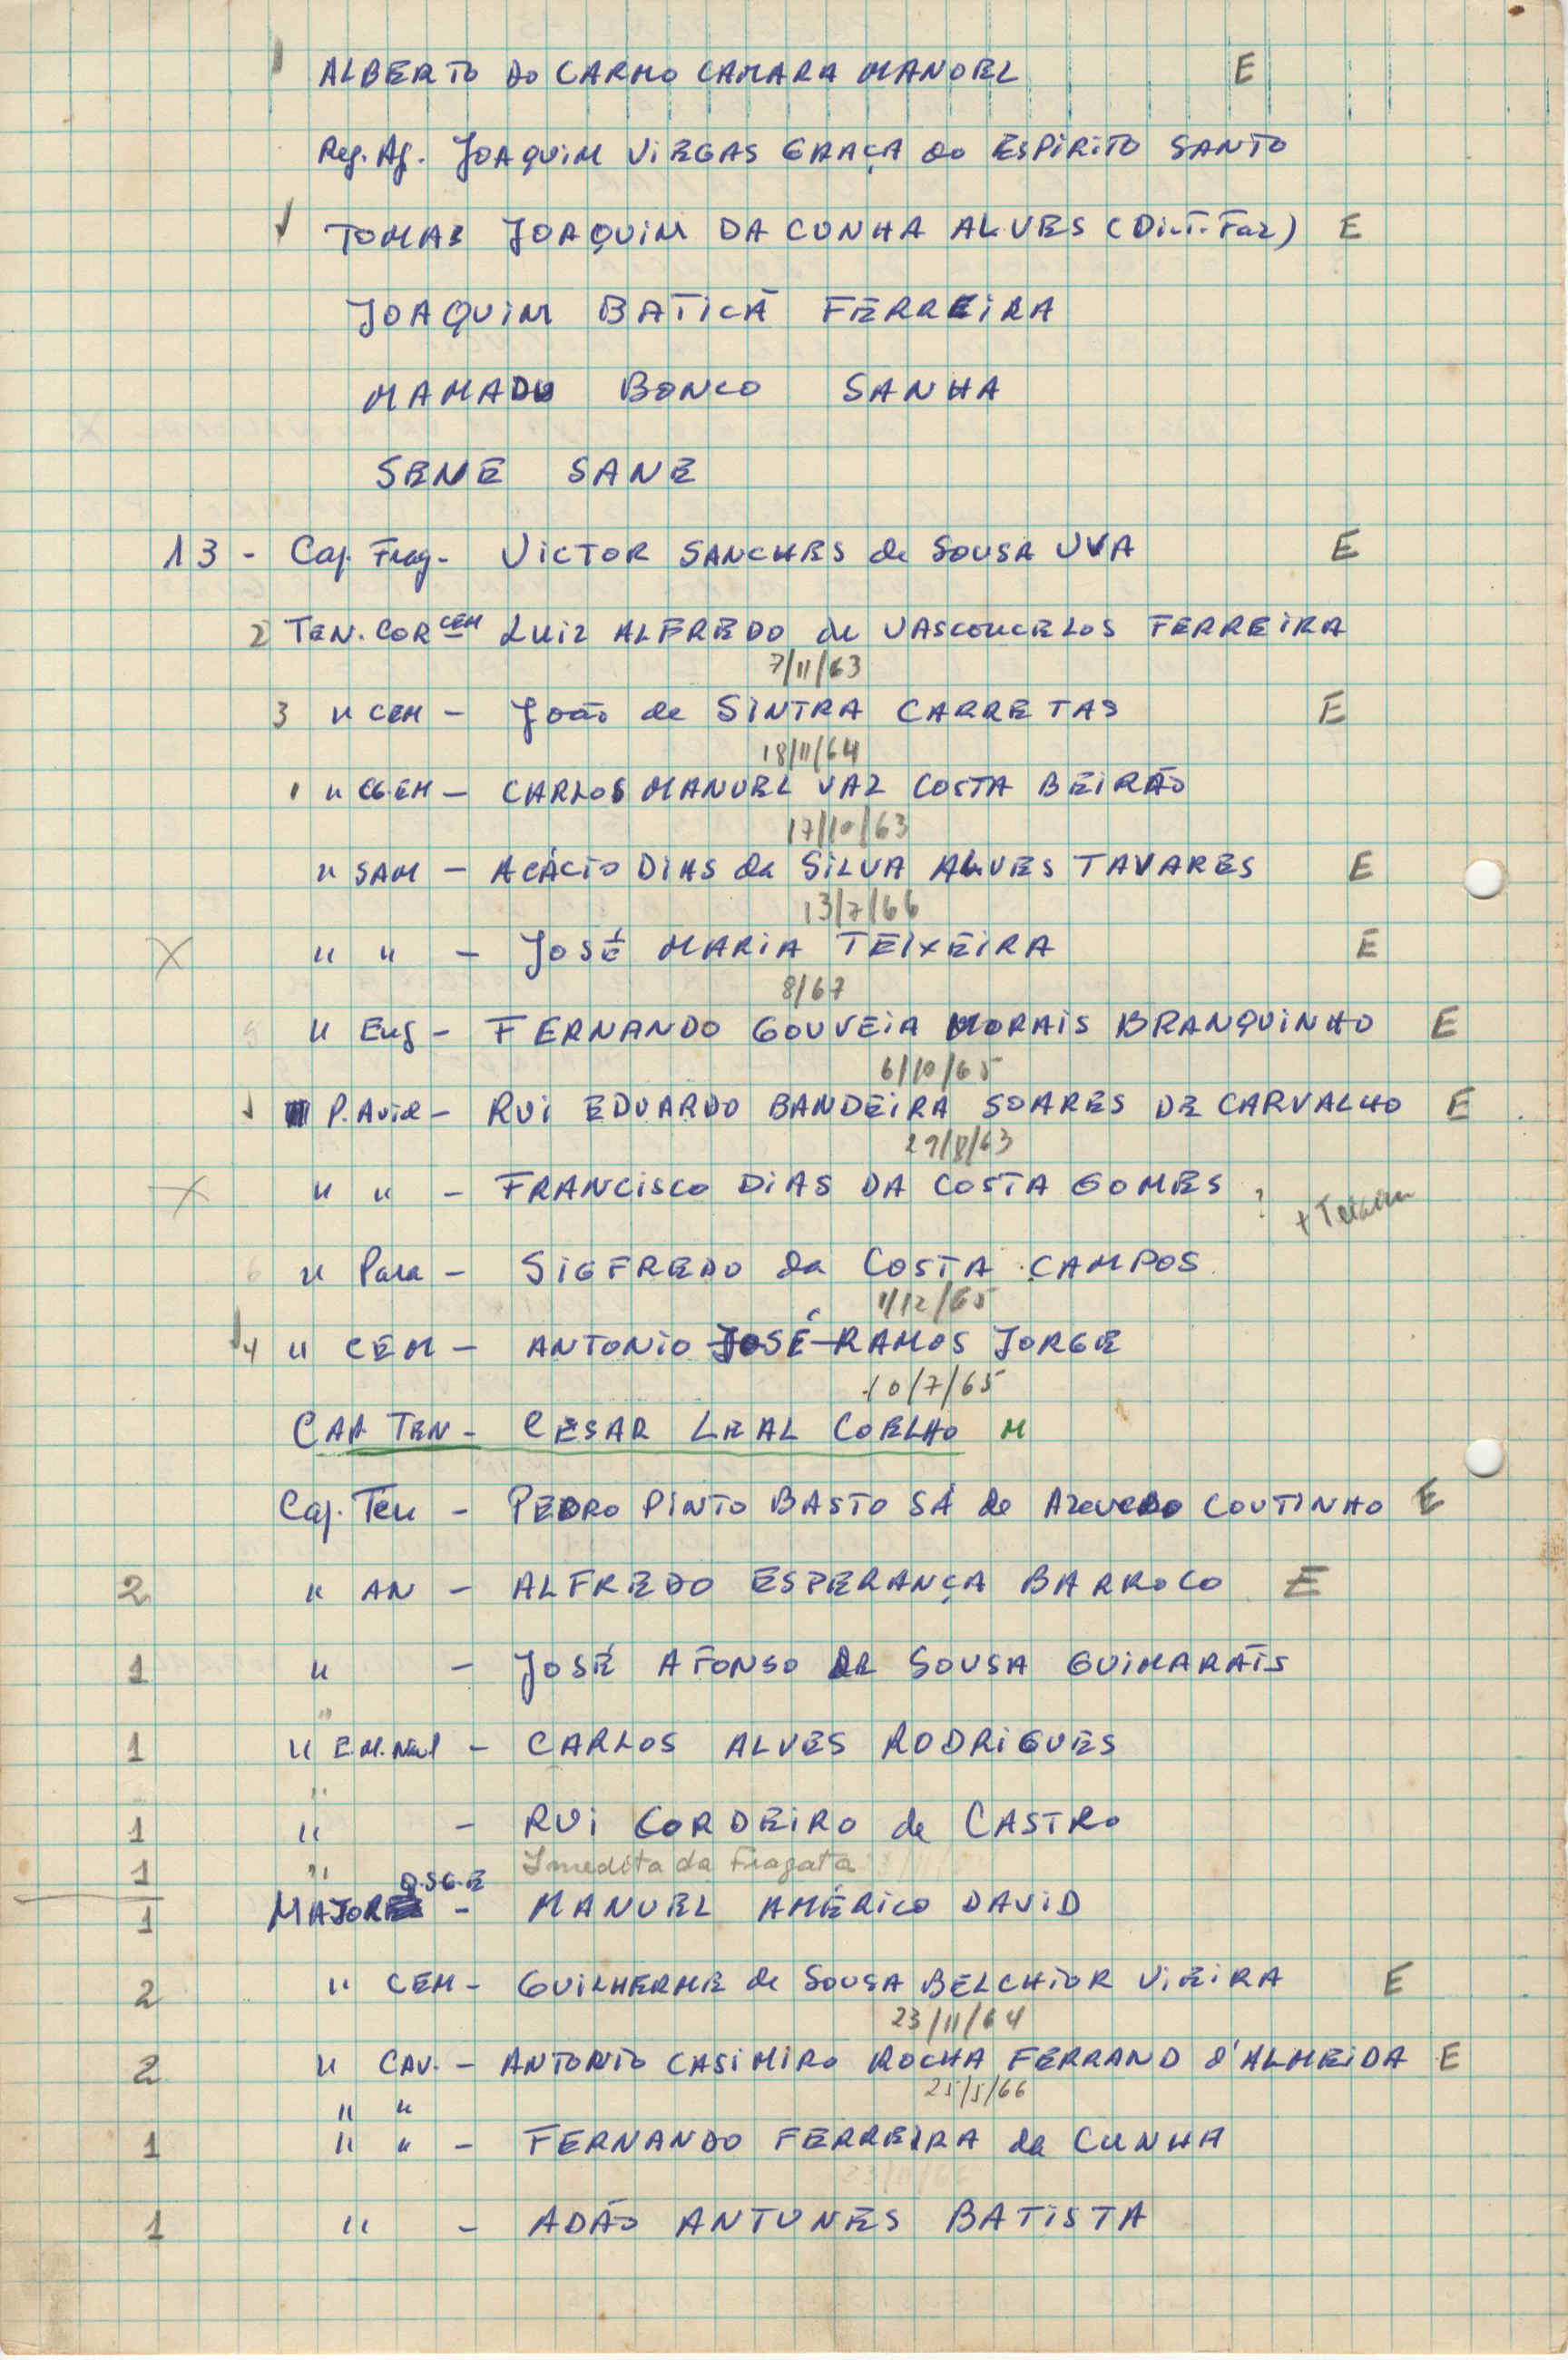 ALBERTO do CARMO CAMARA MANOEL E
Reg. Ag. JOAQUIM VIEGAS GRAÇA do ESPIRITO SANTO
TOMAZ JOAQUIM DA CUNHA ALVES (Dirt. Faz) E
JOAQUIM BATICÃ FERREIRA
MAMADU BONCO SANHA
SENE SANE
13 - Cap. Frag - VICTOR SANCHES de SOUSA UVA E
2 TEN. COR CEM LUIZ ALFREDO de VASCONCELOS FERREIRA
7/11/63
3 " CEM - João de SINTRA CARRETAS E
18/11/64
1 " CGEM - CARLOS MANUEL VAZ COSTA BEIRÃO
17/10/63
" SAM - ACÁCIO DIAS da SILVA ALVES TAVARES E
13/7/66
X " " - JOSÉ MARIA TEIXEIRA E
8/67
" Eng - FERNANDO GOUVEIA MORAIS BRANQUINHO E
6/10/65
P. Aviad - RUI EDUARDO BANDEIRA SOARES DE CARVALHO E
29/8/63
X " " - FRANCISCO DIAS DA COSTA GOMES ?
6 " Para - SIGFREDO da COSTA CAMPOS
1/12/65
4 " CEM - ANTONIO JOSÉ RAMOS JORGE
10/7/65
CAP TEN - CESAR LEAL COELHO M
Cap. Ten - PEDRO PINTO BASTO SÁ de AZEVEDO COUTINHO E
2 " AN - ALFREDO ESPERANÇA BARROCO E
1 " - JOSÉ AFONSO DE SOUSA GUIMARAIS
"
1 " E.M. Naval - CARLOS ALVES RODRIGUES
"
1 " - RUI CORDEIRO de CASTRO
1 " Imedita da Fragata
Q.S.G.E
1 MAJOR - MANUEL AMÉRICO DAVID
2 " CEM - GUILHERME de SOUSA BELCHIOR VIEIRA E
23/11/64
2 " CAV. - ANTONIO CASIMIRO ROCHA FERRAND D'ALMEIDA E
25/5/66
" "
1 " " - FERNANDO FERREIRA da CUNHA
1 " - ADÃO ANTUNES BATISTA